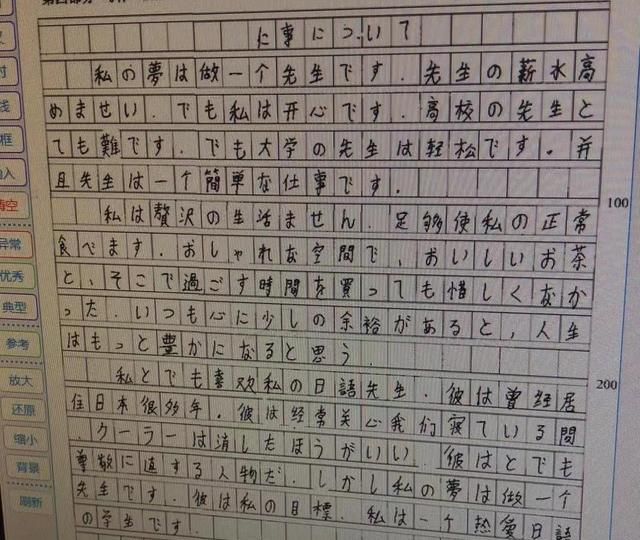 に事について
私の夢は做一个先生です.先生の薪水高
めませい.でも私は开心です.高校の先生と
ても難です.でも大学の先生は軽松です。并
且先生は一个簡単な仕事です.
100
私は贅沢の生活ません.足够使私の正常
食べます.おしゃれな空間で,おいしいお茶
と,そこで過ごす時間を買っても惜しくなか
った.いつも心に少しの余裕があると,人生
はもっと豊かになると思う.
私とでも喜欢私の日語先生.彼は曽経居
200
住日本很多年.彼は経常关心我们寝ている間
,クーラーは消したほうがいい.彼はとでも
尊敬に直する人物だ.しかし私の夢は做一个
先生です.彼は私の目標.私は一个热爱日語
の学生です.
线
框
清空
异常
优秀
典型
参考
放大
还原
缩小
背景
刷新